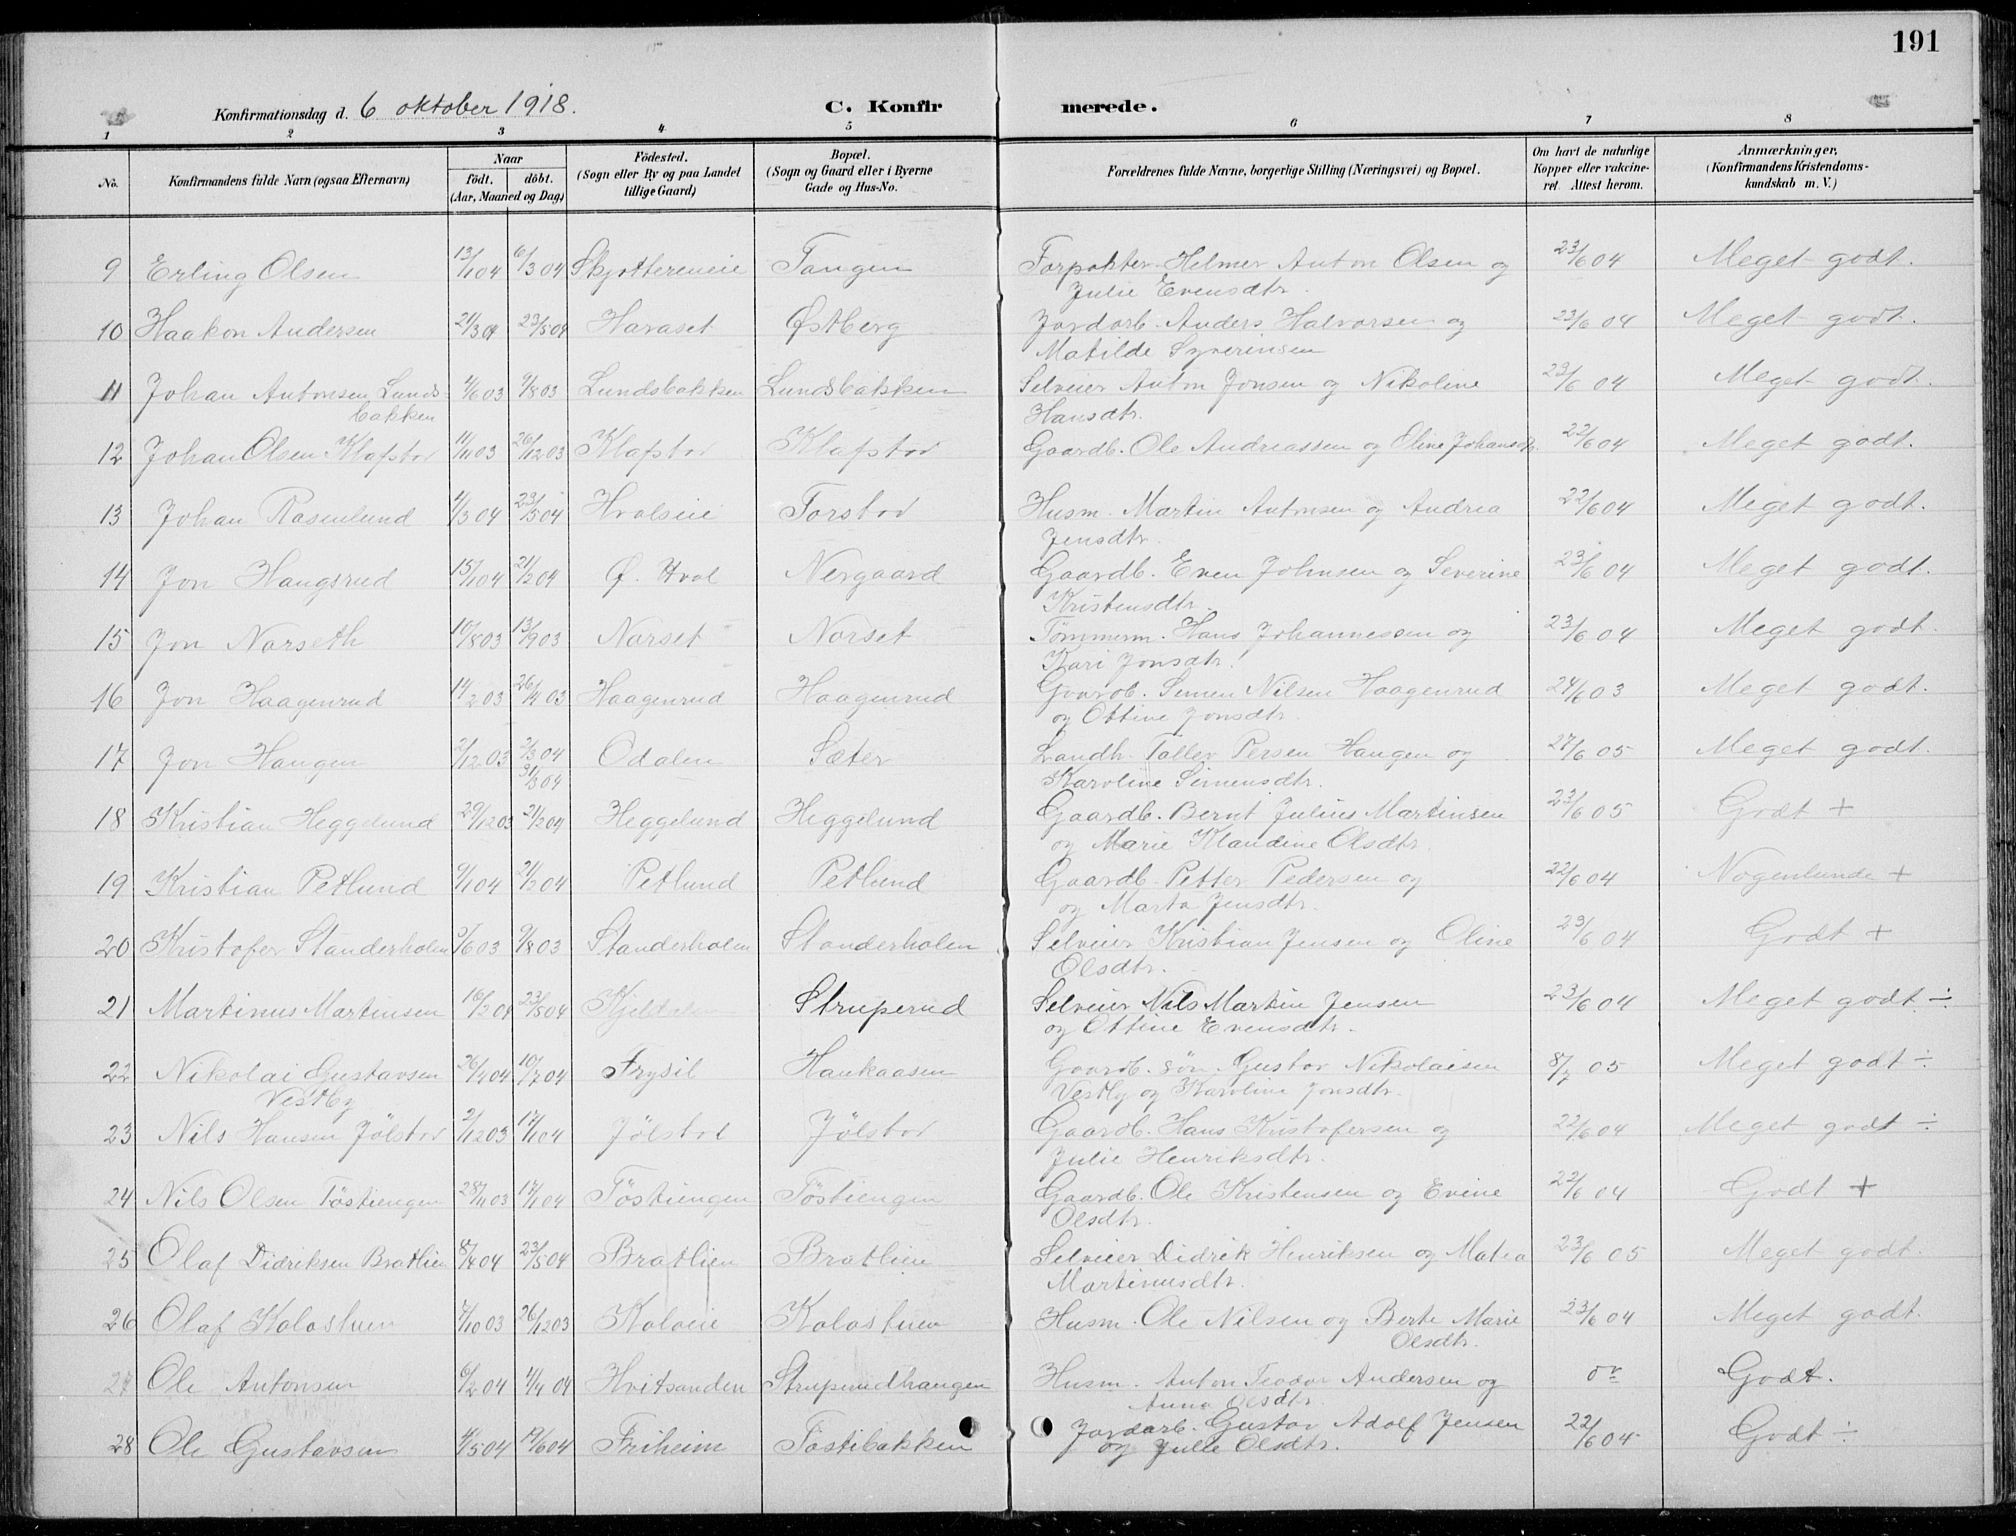 191
Konfirmationsdag d. 6 oktober 1918.
C. Konfirmerede.
1 2 3 4 5 6 7 8
No.
Konfirmandens fulde Navn (ogsaa Efternavn)
Naar
födt. döbt.
(Aar, Maaned og Dag)
Födested.
(Sogn eller By og paa Landet
tillige Gaard)
Bopæl.
(Sogn og Gaard eller i Byerne
Gade og Hus-No.
Forældrenes fulde Navne, borgerlige Stilling (Næringsvei) og Bopæl.
Om havt de naturlige
Kopper eller vakcine-
ret. Attest herom.
Anmærkninger,
(Konfirmandens Kristendoms-
kundskab m. V.)
9 Erling Olsen 13/1 04 6/3 04 Skjottereneie Tangen Forpakter Helmer Anton Olsen og 23/6 04 Meget godt.
Julie Evensdtr.
10 Haakon Andersen 21/3 04 23/5 04 Haraset Østberg Jordarb. Anders Halvorsen og 23/6 04 Meget godt.
Matilde Syverensen
11 Johan Antonsen Lunds- 4/6 03 9/8 03 Lundsbakken Lundsbakken Selveier Anton Jonsen og Nikoline 23/6 04 Meget godt.
bakken Hansdtr.
12 Johan Olsen Klapstor 11/11 03 26/12 03 Klapstor Klapstor Gaardb. Ole Andreassen og Eline Johansdtr. 22/6 04 Meget godt.
13 Johan Rosenlund 4/3 04 23/5 04 Hvalseie Torstor Husm. Martin Antonsen og Andrea 22/6 04 Meget godt.
Jensdtr.
14 Jon Haugsrud 15/1 04 21/2 04 Ø. Hval Nergaard Gaardb. Even Johnsen og Severine 23/6 04 Meget godt.
Kristensdtr.
15 Jon Narseth 10/8 03 13/9 03 Norset Norset Tömmerm. Hans Johannessen og 23/6 04 Meget godt.
Kari Jonsdtr.
16 Jon Haagenrud 14/2 03 26/4 03 Haagenrud Haagenrud Gaardb. Simen Nilsen Haagenrud 24/6 03 Meget godt.
og Ottine Jonsdtr.
17 Jon Haugen 2/12 03 2/3 04 Odalen Sæter Landh. Tallev Persen Haugen og 27/6 05 Meget godt.
31/3 04 Karoline Simensdtr.
18 Kristian Heggelund 29/12 03 21/2 04 Heggelund Heggelund Gaardb. Bernt Julius Martinsen 23/6 05 Godt +
og Marie Klaudine Olsdtr.
19 Kristian Petlund 9/1 04 21/2 04 Petlund Petlund Gaardb. Petter Pedersen og 22/6 04 Nogenlunde +
og Marta Jensdtr.
20 Kristofer Standerholen 9/6 03 9/8 03 Standerholen Standerholen Selveier Kristian Jensen og Oline 23/6 04 Godt +
Olsdtr.
21 Martinus Martinsen 16/2 04 23/5 04 Struperud Selveier Nils Martin Jensen 23/6 04 Meget godt ÷
og Ottine Evensdtr.
22 Nikolai Gustavsen 26/4 04 10/7 04 Trysil Haukaasen Gaardb. sön Gustav Nikolaisen 8/7 05 Meget godt ÷
Vestby Vestby og Karoline Jonsdtr.
23 Nils Hansen Jölstor 2/12 03 17/1 04 Jölstor Jölstor Gaardb. Hans Kristofersen og 22/6 04 Meget godt ÷
Julie Henriksdtr.
24 Nils Olsen Töstiengen 28/11 03 17/1 04 Töstiengen Töstiengen Gaardb. Ole Kristensen og Evine 22/6 04 Godt +
Olsdtr.
25 Olaf Didriksen Bratlien 8/4 04 23/5 04 Bratlien Bratlien Selveier Didrik Henriksen og Matea 23/6 05 Meget godt.
Martinusdtr.
26 Olaf Kolostuen 7/10 03 26/12 03 Koloeie Kolostuen Husm. Ole Nilsen og Berte Marie 23/6 04 Meget godt.
Olsdtr.
27 Ole Antonsen 6/2 04 4/4 04 Hvitsanden Struperudhaugen Husm. Anton Teodor Andersen og Godt.
Anna Olsdtr.
28 Ole Gustavsen 4/5 04 19/6 04 Friheim Töstibakken Jordarb. Gustav Adolf Jensen 22/6 04 Godt ÷
og Julie Olsdtr.